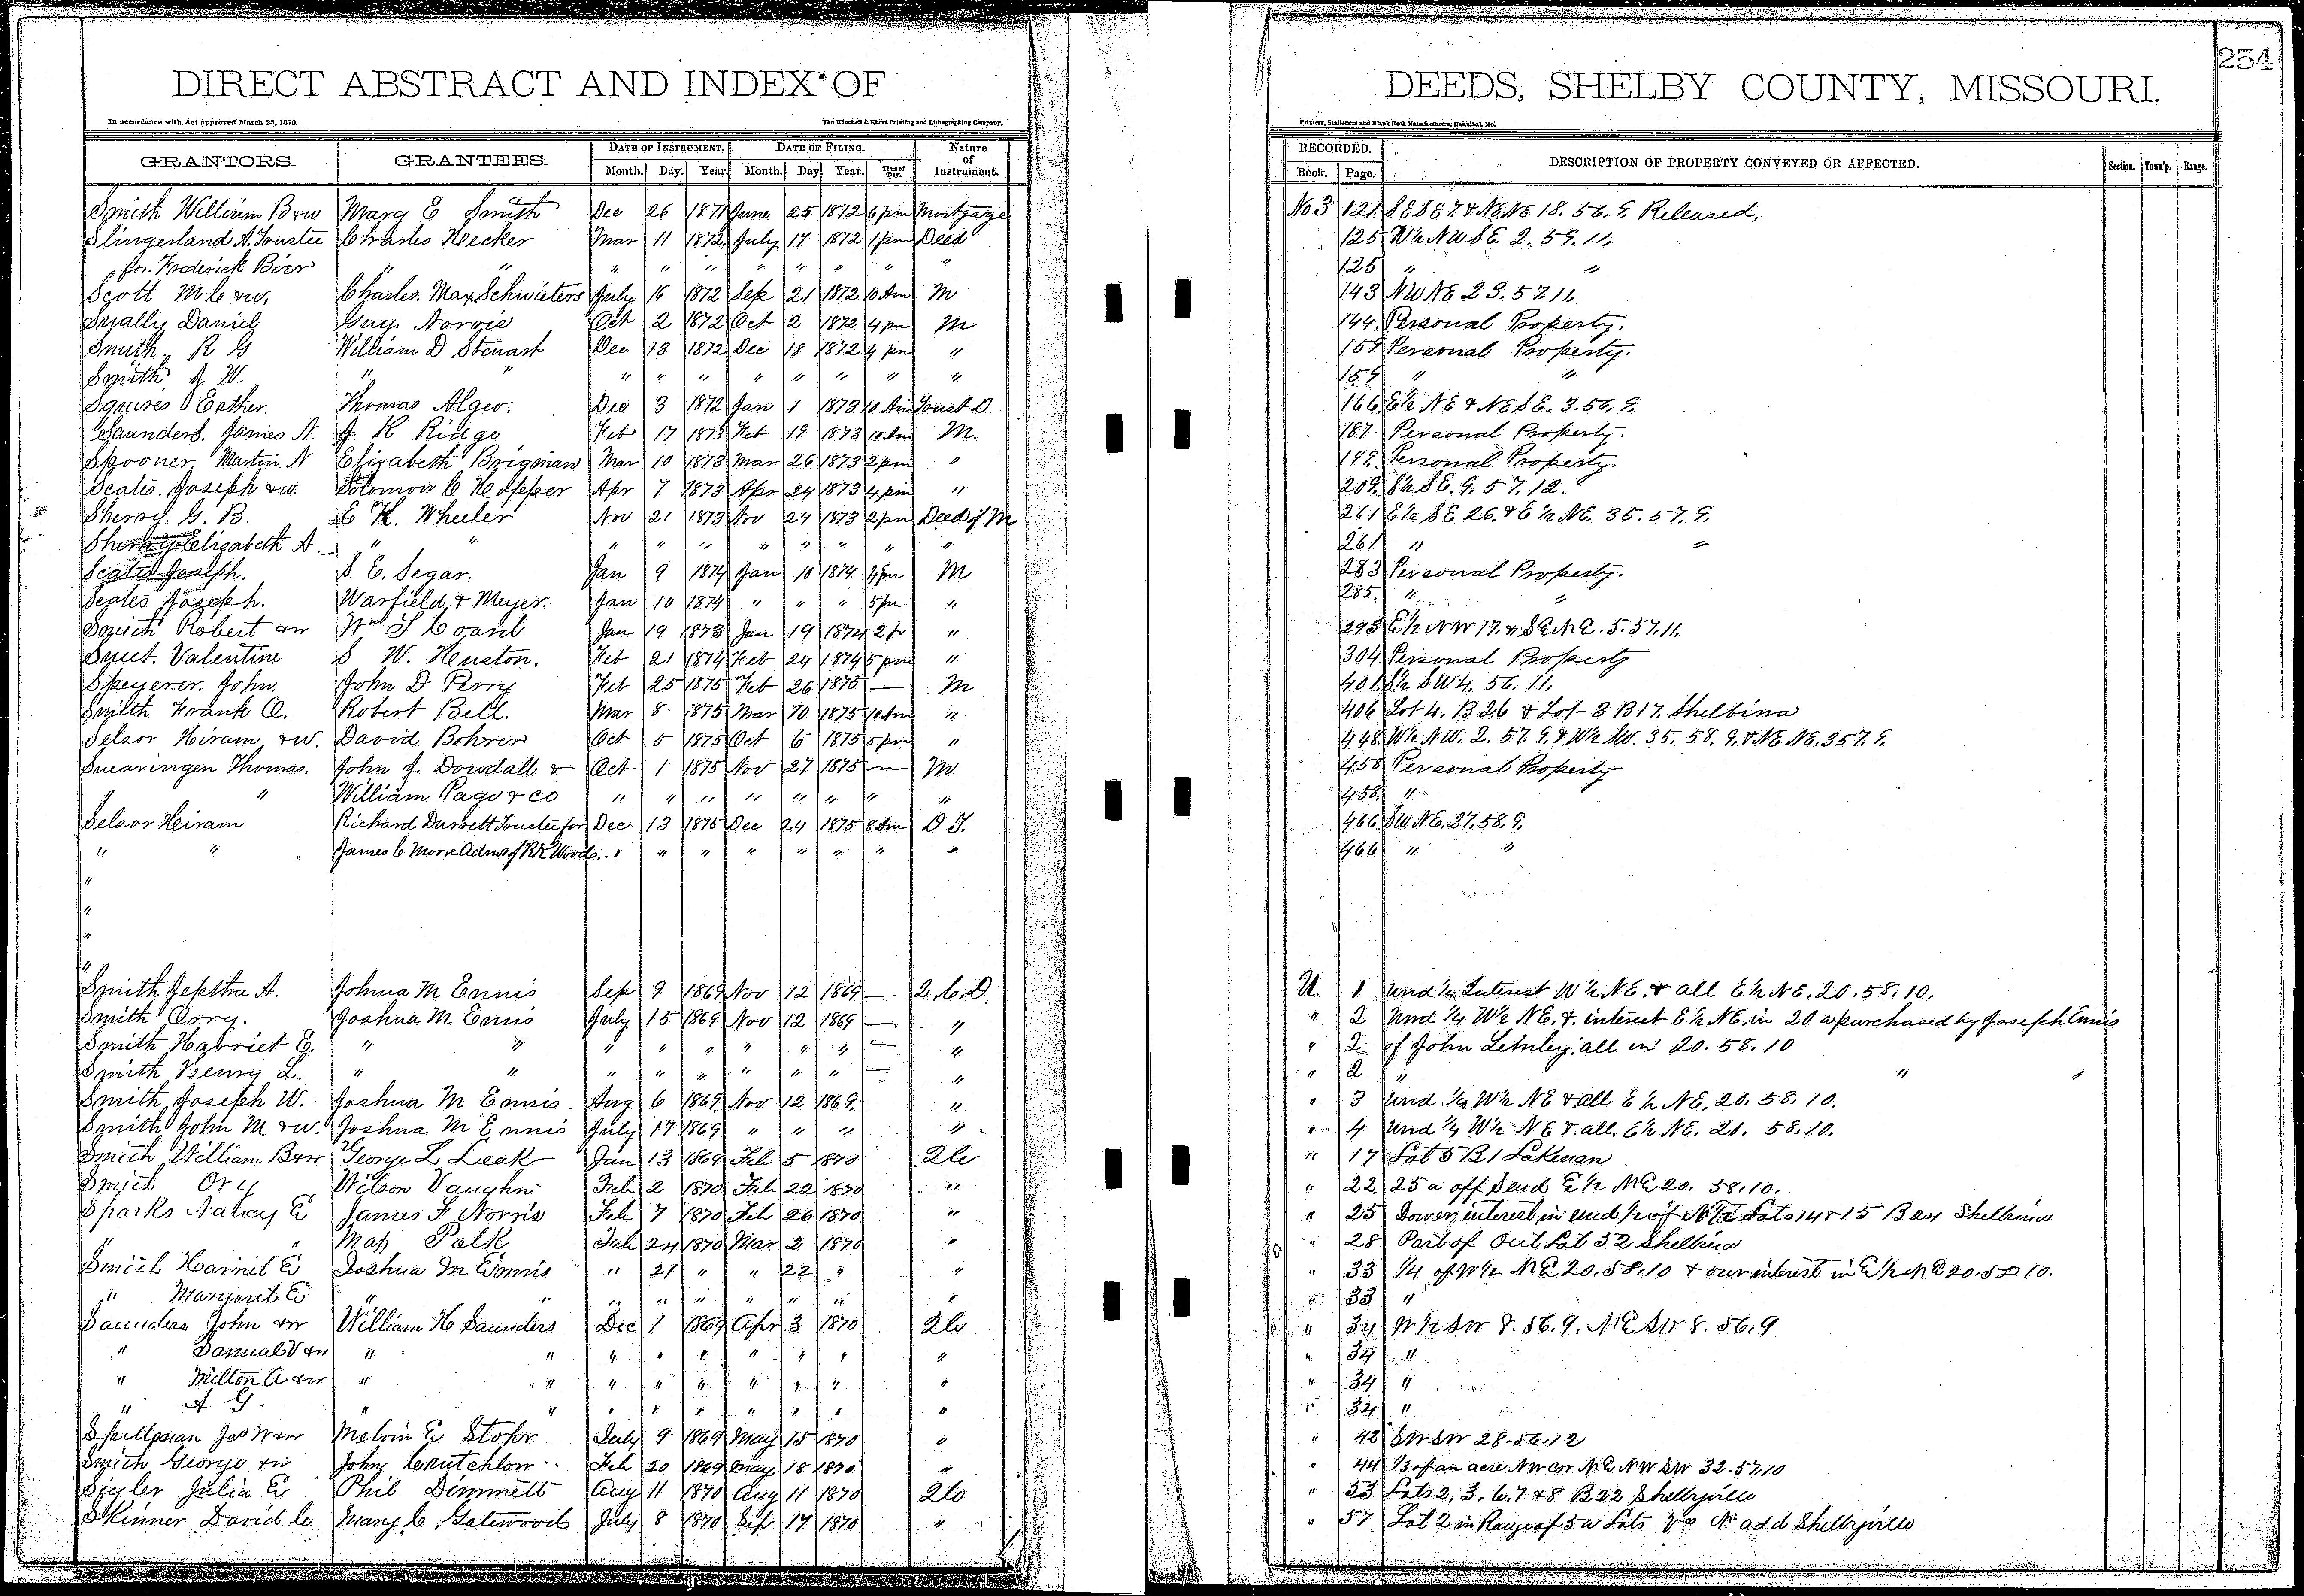 254
DIRECT ABSTRACT AND INDEX OF DEEDS, SHELBY COUNTY, MISSOURI.
In accordance with Act approved March 25, 1870. The Winchell & Ebert Printing and Lithographing Company, Printers, Stationers and Blank Book Manufacturers, Hannibal, Mo.
GRANTORS. GRANTEES. DATE OF INSTRUMENT. DATE OF FILING. Nature of Instrument. RECORDED. DESCRIPTION OF PROPERTY CONVEYED OR AFFECTED. Section. Town'p. Range.
Month. Day. Year. Month. Day Year. Time of Day. Book. Page.
Smith William B & w Mary E Smith Dec 26 1871 June 25 1872 6 pm Mortgage No 3 121 SE SE 7. & NE NE 18. 56. 9. Released,
Slingerland A. Trustee Charles Hecker Mar 11 1872 July 17 1872 1 pm Deed 125 W½ NW SE. 2. 59. 11.
for Frederick Bier " " " " " " " " " " 125 " "
Scott M C & w. Charles. Max Schwieters July 16 1872 Sep 21 1872 10 Am M 143 NW NE 23. 57. 11.
Daniel Guy. Norris Oct 2 1872 Oct 2 1872 4 pm M 144. Personal Property.
Smith R G William D Stewart Dec 13 1872 Dec 18 1872 4 pm " 159 Personal Property.
Smith J W. " " " " " " " " " " 159 " "
Squires Esther. Thomas Algeo. Dec 3 1872 Jan 1 1873 10 Am Trust D 166 E½ NE & NE SE. 3. 56. 9.
Saunders. James A. J K Ridge Feb 17 1873 Feb 19 1873 10 Am M. 187. Personal Property.
Spooner Martin N Elizabeth Brigman Mar 10 1873 Mar 26 1873 2 pm " 199. Personal Property.
Scates. Joseph & w. Solomon C Hopper Apr 7 1873 Apr 24 1873 4 pm " 209. S½ SE. 9. 57. 12.
Sherry. G. B. E K. Wheeler Nov 21 1873 Nov 24 1873 2 pm Deed of M 261 E½ SE 26. & E½ NE. 35. 57. 9.
Sherry Elizabeth A. " " " " " " " " " " 261 " "
Scates Joseph. S E. Segar. Jan 9 1874 Jan 10 1874 M 283 Personal Property.
Scates Joseph. Warfield & Meyer. Jan 10 1874 " " " 5 pm " 285. " "
Smith Robert & w Wm S Coard Jan 19 1873 Jan 19 1874 " 293 E½ NW 17. & SE NE. 5. 57. 11.
Valentine S W. Heuston. Feb 21 1874 Feb 24 1874 5 pm " 304 Personal Property
Speyerer. John. John D Perry Feb 25 1875 Feb 26 1875 — M 401. S½ SW 4. 56. 11.
Smith Frank C. Robert Bell. Mar 8 1875 Mar 10 1875 10 Am " 406 Lot 4. B 26 & Lot 3 B 17. Shelbina
Selsor Hiram & w. David Bohrer Oct 5 1875 Oct 6 1875 5 pm " 448. W½ NW. 2. 57. 9. & W½ SW. 35. 58. 9. & NE NE. 3 57. 9.
Swearingen Thomas. John J. Dowdall & Oct 1 1875 Nov 27 1875 — M 458 Personal Property
" " William Page & co " " " " " " " " 458. "
Selsor Heiram Richard Durrett Trustee for Dec 13 1875 Dec 24 1875 8 Am D T. 466 SW NE. 27. 58. 9.
" " James C Moore Admr of R K Wood. " " " " " " " " 466 " "
"
"
"
"
Smith Jeptha A. Johua M Ennis Sep 9 1869 Nov 12 1869 — 2. C. D. U. 1 Und ¼ Interest W½ NE. & all E½ NE. 20. 58. 10.
Smith Orry. Joshua M Ennis July 15 1869 Nov 12 1869 — " " 2 Und ¼ W½ NE. & interest E½ NE. in 20 a purchased by Joseph Ennis
Smith Harriet E. " " " " " " " " — " " 2 of John Lemley. all in 20. 58. 10
Smith Henry L. " " " " " " " " — " " 2 " " "
Smith Joseph W. Joshua M Ennis. Aug 6 1869 Nov 12 1869. " " 3 Und ¼ W½ NE & all E½ NE. 20. 58. 10.
Smith John M & w. Joshua M Ennis July 17 1869 " " " " " 4 Und ¼ W½ NE & all. E½ NE. 20. 58. 10.
Smith William B & w George L Leak Jan 13 1869 Feb 5 1870 2 C " 17 Lot 5 B 1 Lakenan
Smith Ory Wilson Vaughn Feb 2 1870 Feb 22 1870 " " 22 25 a off S end E½ NE 20. 58. 10.
Sparks Nancy E James F Norris Feb 7 1870 Feb 26 1870 " " 25 Dower interest in und ½ of Lots 14 & 15 B 24 Shelbina
" " Polk Feb 24 1870 Mar 2 1870 " " 28 Part of Out Lot 32 Shelbina
Smith Harriet E Joshua M Ennis " 21 " " 22 " " " 33 ¼ of W½ NE 20. 58. 10 & our interest in E½ NE 20. 58 10.
" Margaret E " " " " " " " " " " 33 "
Saunders John & w William H Saunders Dec 1 1869 Apr 3 1870 2 C " 34 W½ SW 8. 56. 9. NE SW 8. 56. 9
" Samuel V & w " " " " " " " " " " 34 "
" Milton A & w " " " " " " " " " " 34 "
" A G. " " " " " " " " " " 34 "
Spillman Jas W & w Melvin E Stohr July 9 1869 May 15 1870 " " 42 SW SW 28. 56. 12
Smith George & w John Crutchlow Feb 20 1869 May 18 1870 " " 44 1/3 of an acre NW cor NE NW SW 32. 57. 10
Sigler Julia E Phil Dimmitt Aug 11 1870 Aug 11 1870 2 C " 53 Lots 2, 3, 6. 7 & 8 B 22 Shelbyville
Skinner David C Mary C. Gatewood July 8 1870 Sep 17 1870 " " 57 Lot 2 in Range of 5 a Lots add Shelbyville